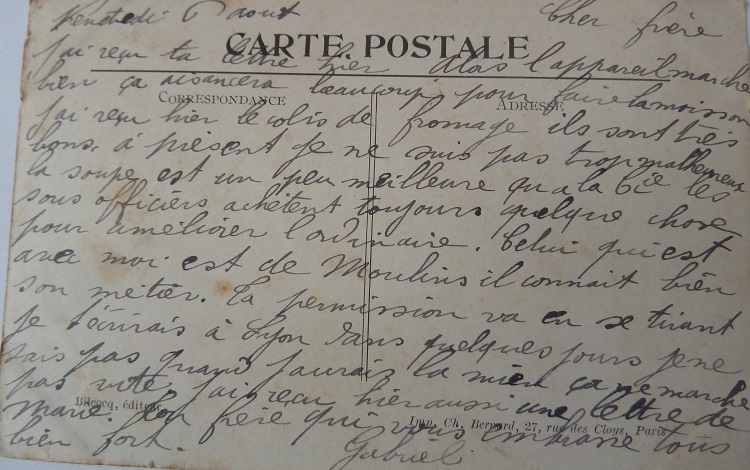 Vendredi 6 aout Cher frère
CARTE POSTALE
j'ai reçu ta lettre hier alors l'appareil marche
bien ça avancera beaucoup pour faire la moisson
CORRESPONDANCE
ADRESSE
j'ai reçu hier le colis de fromage ils sont très
bons. à présent je ne suis pas trop malheureux
la soupe est un peu meilleure qu a la Cie les
sous officiers achètent toujours quelque chose
pour améliorer l'ordinaire. Celui qui est
avec moi est de Moulins il connait bien
son métier. La permission va en se tirant
je écrirais à Lyon dans quelques jours je ne
sais pas quand j'aurais la mien ça ne marche
pas vite j'ai reçu hier aussi une lettre de
Bilcocq, éditeur
Imp. Ch. Bernard, 27, rue des Cloys, Paris
Marie. Ton frère qui vous embrasse tous
bien fort. Gabriel